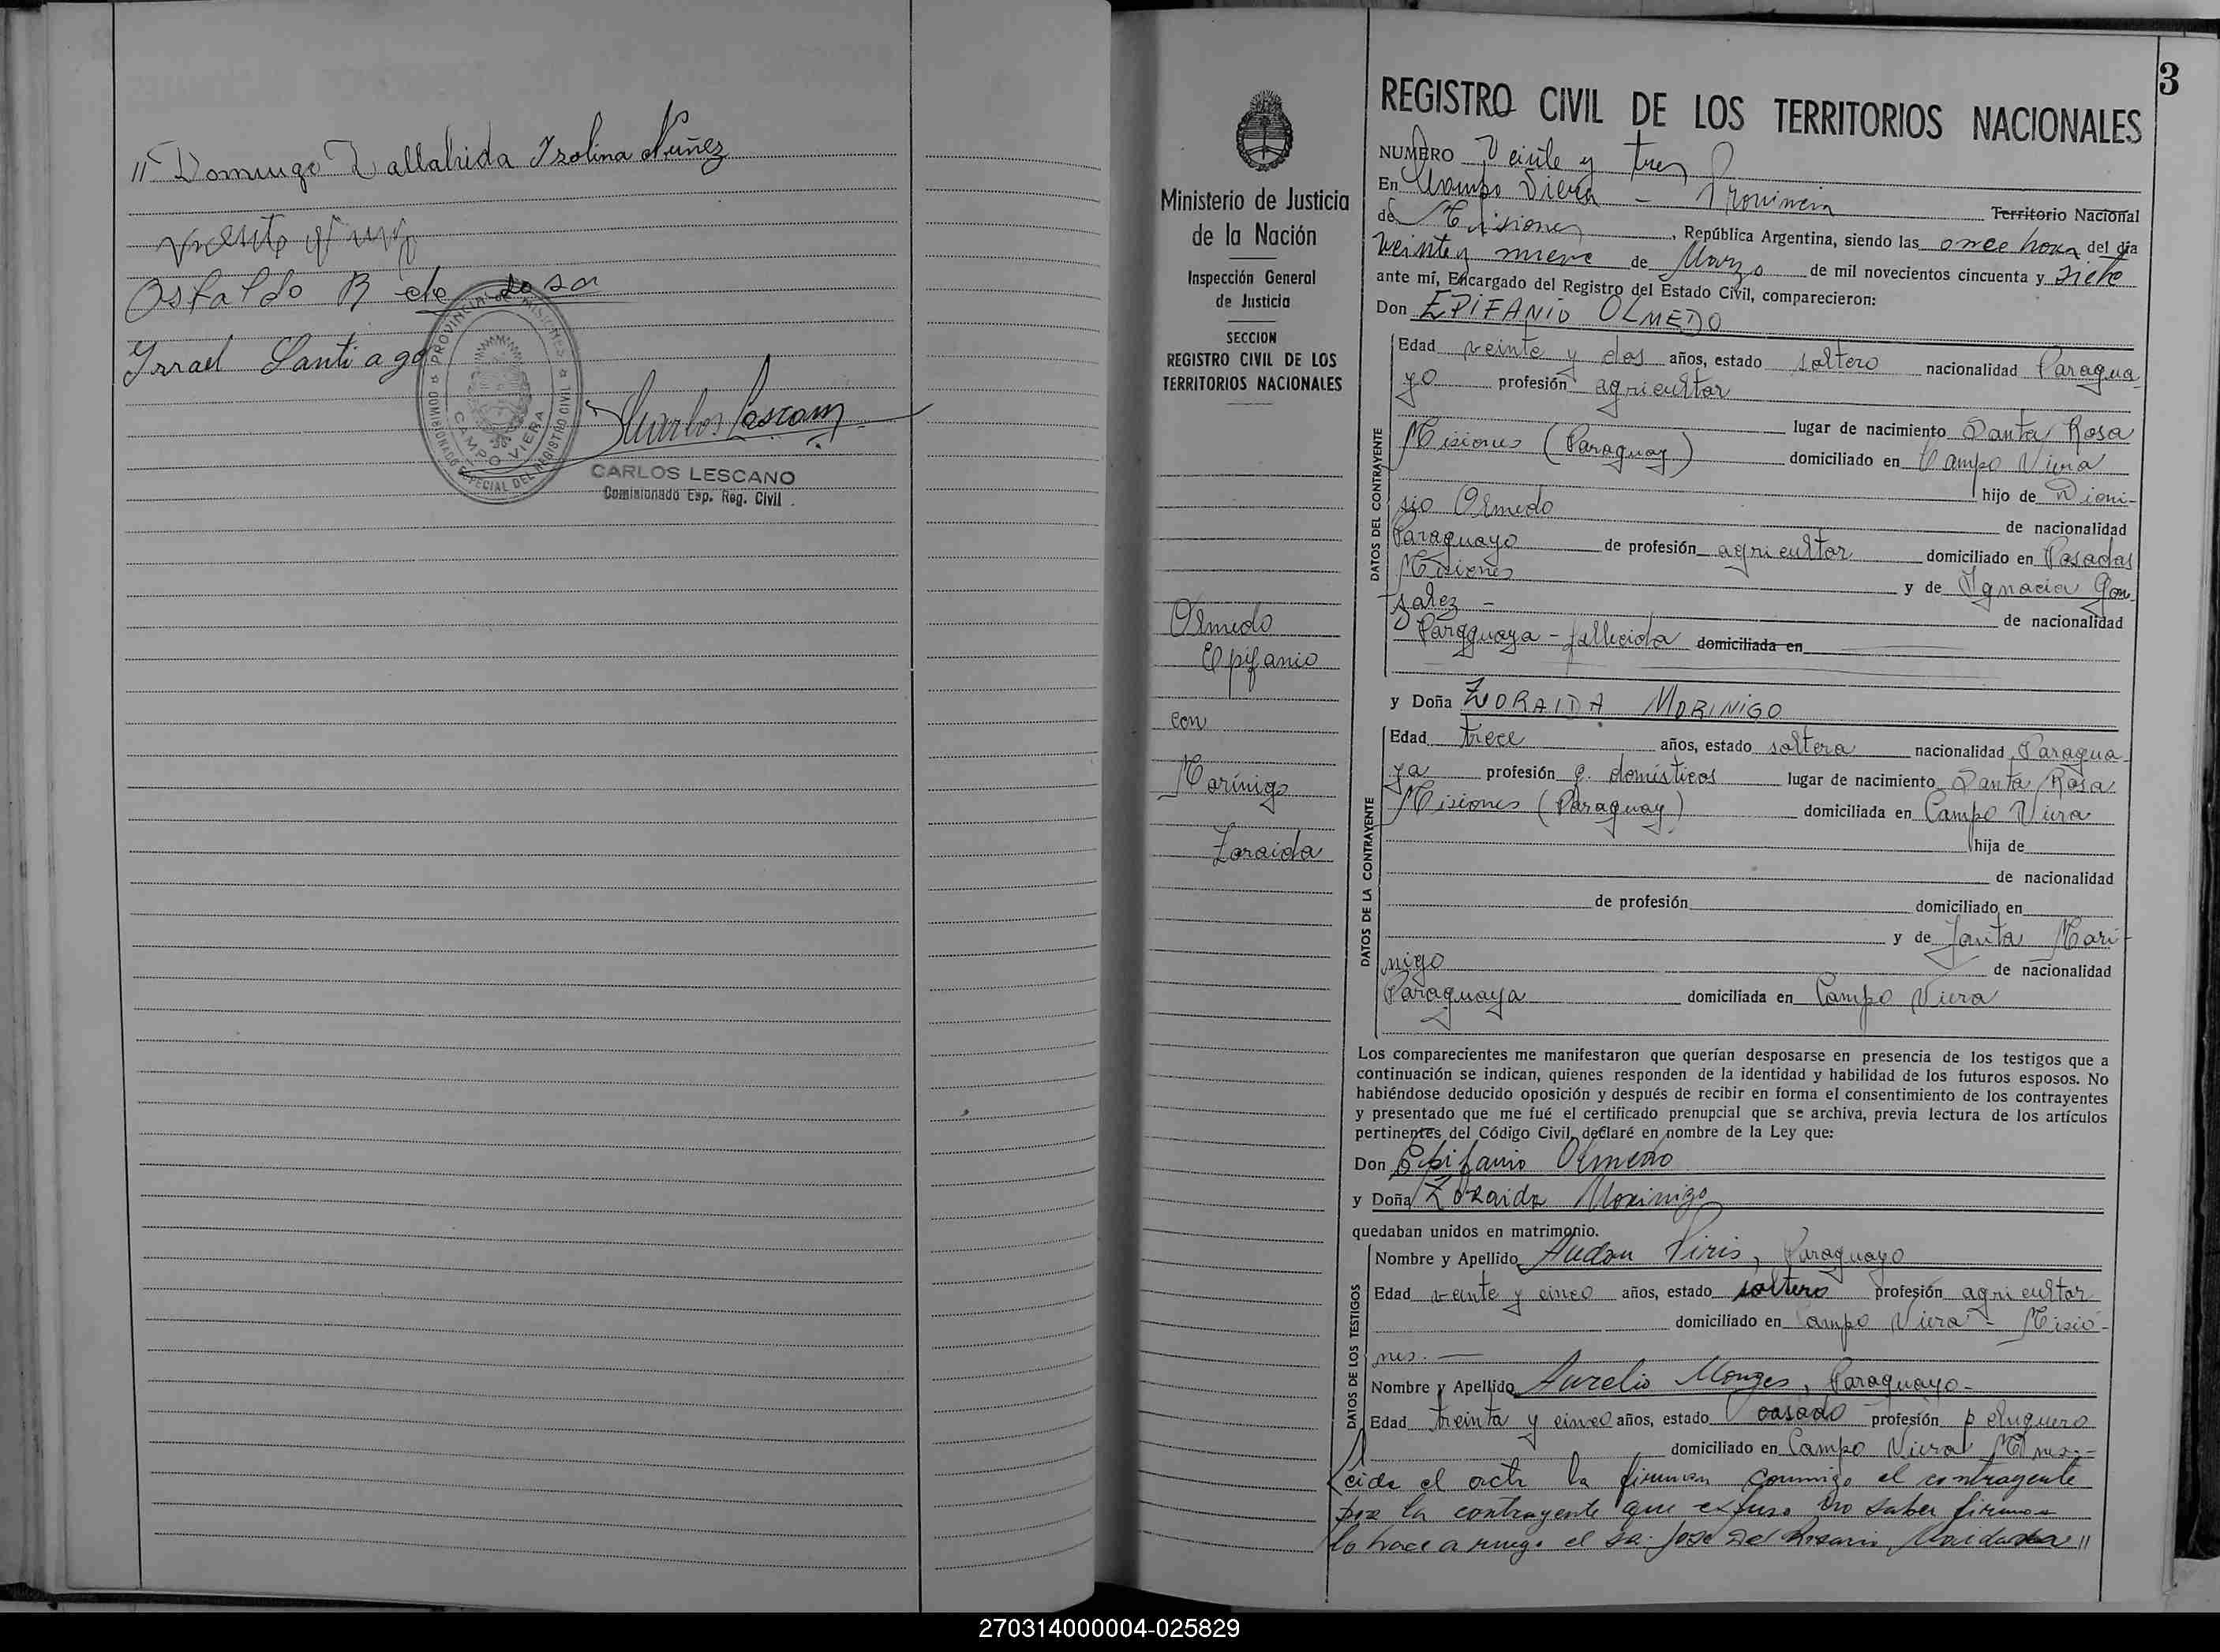 " Domingo Dallabrida Isolina Nuñez
Osfaldo B de
Yrrael Santiago
PROVINCIA DE MISIONES
COMISIONADO ESPECIAL DEL REGISTRO CIVIL
CAMPO VIERA
CARLOS LESCANO
Comisionado Esp. Reg. Civil
3
Ministerio de Justicia
de la Nación
Inspección General
de Justicia
SECCION
REGISTRO CIVIL DE LOS
TERRITORIOS NACIONALES
Olmedo
Epifanio
con
Marínigo
Zoraida
REGISTRO CIVIL DE LOS TERRITORIOS NACIONALES
NUMERO Veinte y tres
En Campo Viera - Provincia Territorio Nacional
de Misiones, República Argentina, siendo las once horas del día
veinte y nueve de Marzo de mil novecientos cincuenta y siete
ante mí, Encargado del Registro del Estado Civil, comparecieron:
Don EPIFANIO OLMEDO
DATOS DEL CONTRAYENTE
Edad veinte y dos años, estado soltero nacionalidad Paragua
yo profesión agricultor
lugar de nacimiento Santa Rosa
Misiones (Paraguay) domiciliado en Campo Viera
hijo de Dioni-
sio Olmedo de nacionalidad
Paraguayo de profesión agricultor domiciliado en Posadas
Misiones y de Ignacia Gon
salez - de nacionalidad
Paraguaya - fallecida domiciliada en
y Doña ZORAIDA MORINIGO
DATOS DE LA CONTRAYENTE
Edad trece años, estado soltera nacionalidad Paragua
ya profesión q. domésticos lugar de nacimiento Santa Rosa
Misiones (Paraguay) domiciliada en Campo Viera
hija de
de nacionalidad
de profesión domiciliado en
y de Mari-
nigo de nacionalidad
Paraguaya domiciliada en Campo Viera
Los comparecientes me manifestaron que querían desposarse en presencia de los testigos que a
continuación se indican, quienes responden de la identidad y habilidad de los futuros esposos. No
habiéndose deducido oposición y después de recibir en forma el consentimiento de los contrayentes
y presentado que me fué el certificado prenupcial que se archiva, previa lectura de los artículos
pertinentes del Código Civil, declaré en nombre de la Ley que:
Don Epifanio Olmedo
y Doña Zoraida Morinigo
quedaban unidos en matrimonio.
DATOS DE LOS TESTIGOS
Nombre y Apellido Piris, Paraguayo
Edad veinte y cinco años, estado soltero profesión agricultor
domiciliado en Campo Viera - Misio-
nes. -
Nombre y Apellido Aurelio Monges, Paraguayo-
Edad treinta y cinco años, estado casado profesión peluquero
domiciliado en Campo Viera
Leida el acta la firman conmigo el contrayente
por la contrayente que expuso no saber firmar
lo hace a ruego el Sr. Jose Del Rosario "
270314000004-025829